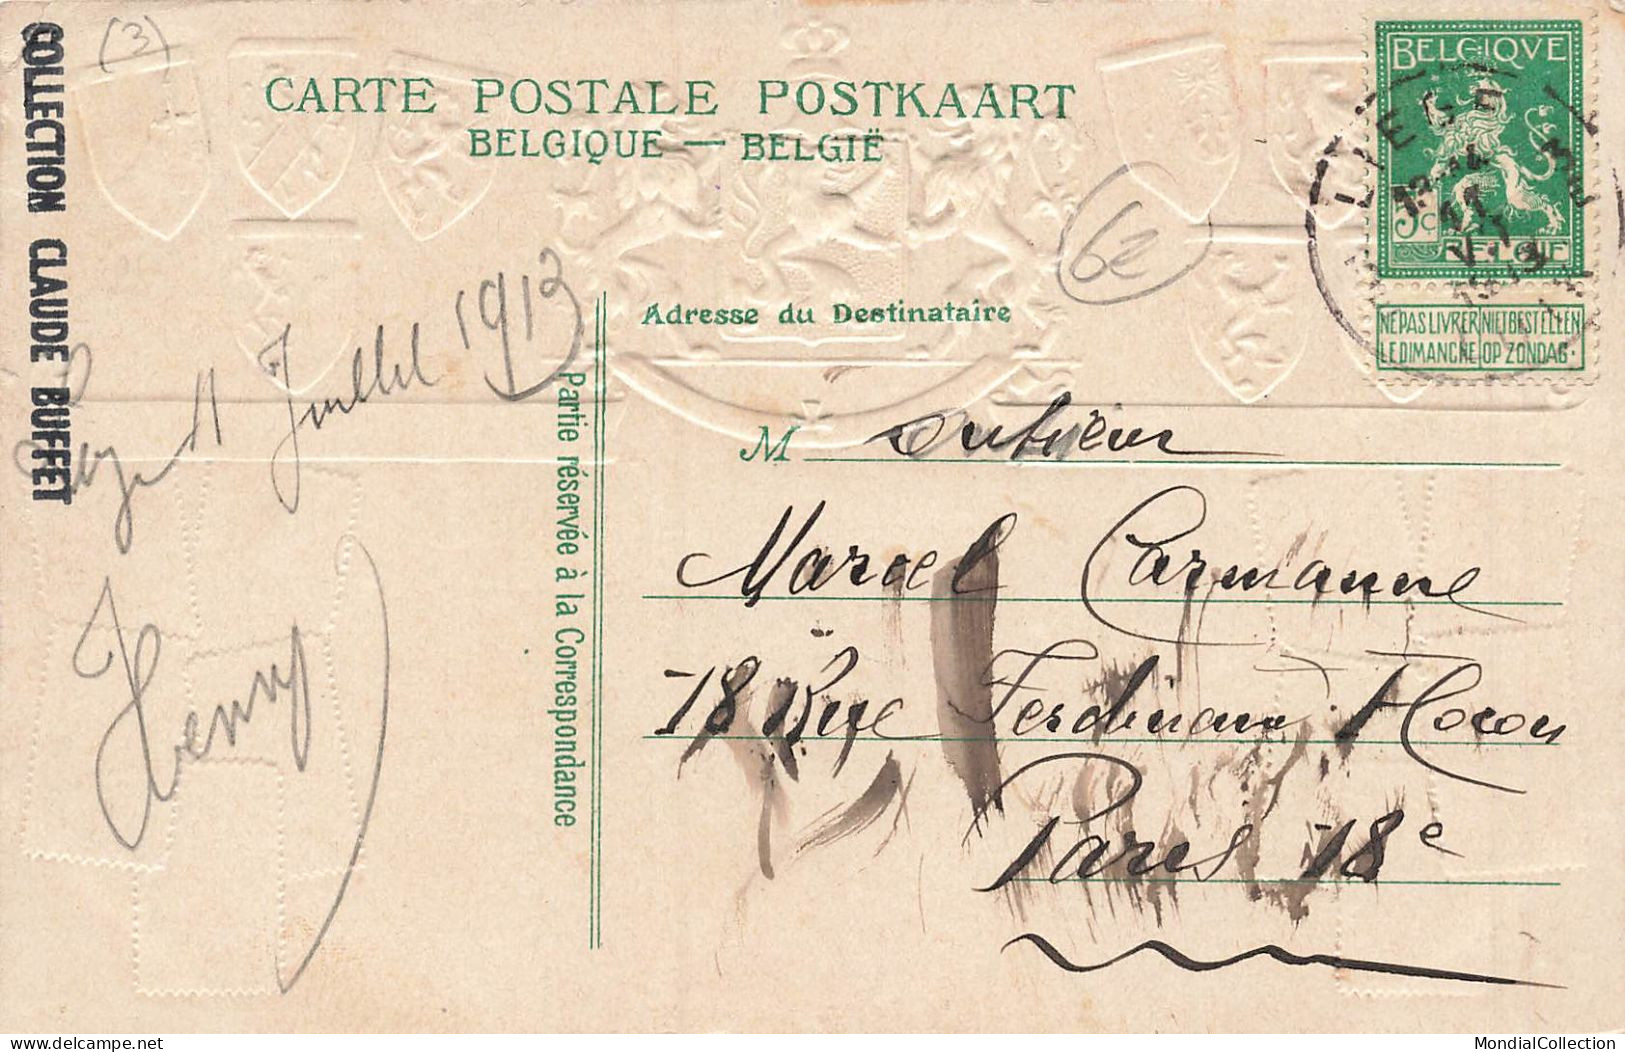 COLLECTION CLAUDE BUFFET
(3)
CARTE POSTALE POSTKAART
BELGIQUE — BELGIË
BELGIQVE
5c
BELGIE
NE PAS LIVRER NIET BESTELLEN
LE DIMANCHE OP ZONDAG.
LIEGE
11
VII
1913
6€
Juillet 1913
Henry
Partie réservée à la Correspondance
Adresse du Destinataire
M
Marcel Carmanne
18 Rue Ferdinand Flocon
Paris 18e
delcampe.net
MondialCollection